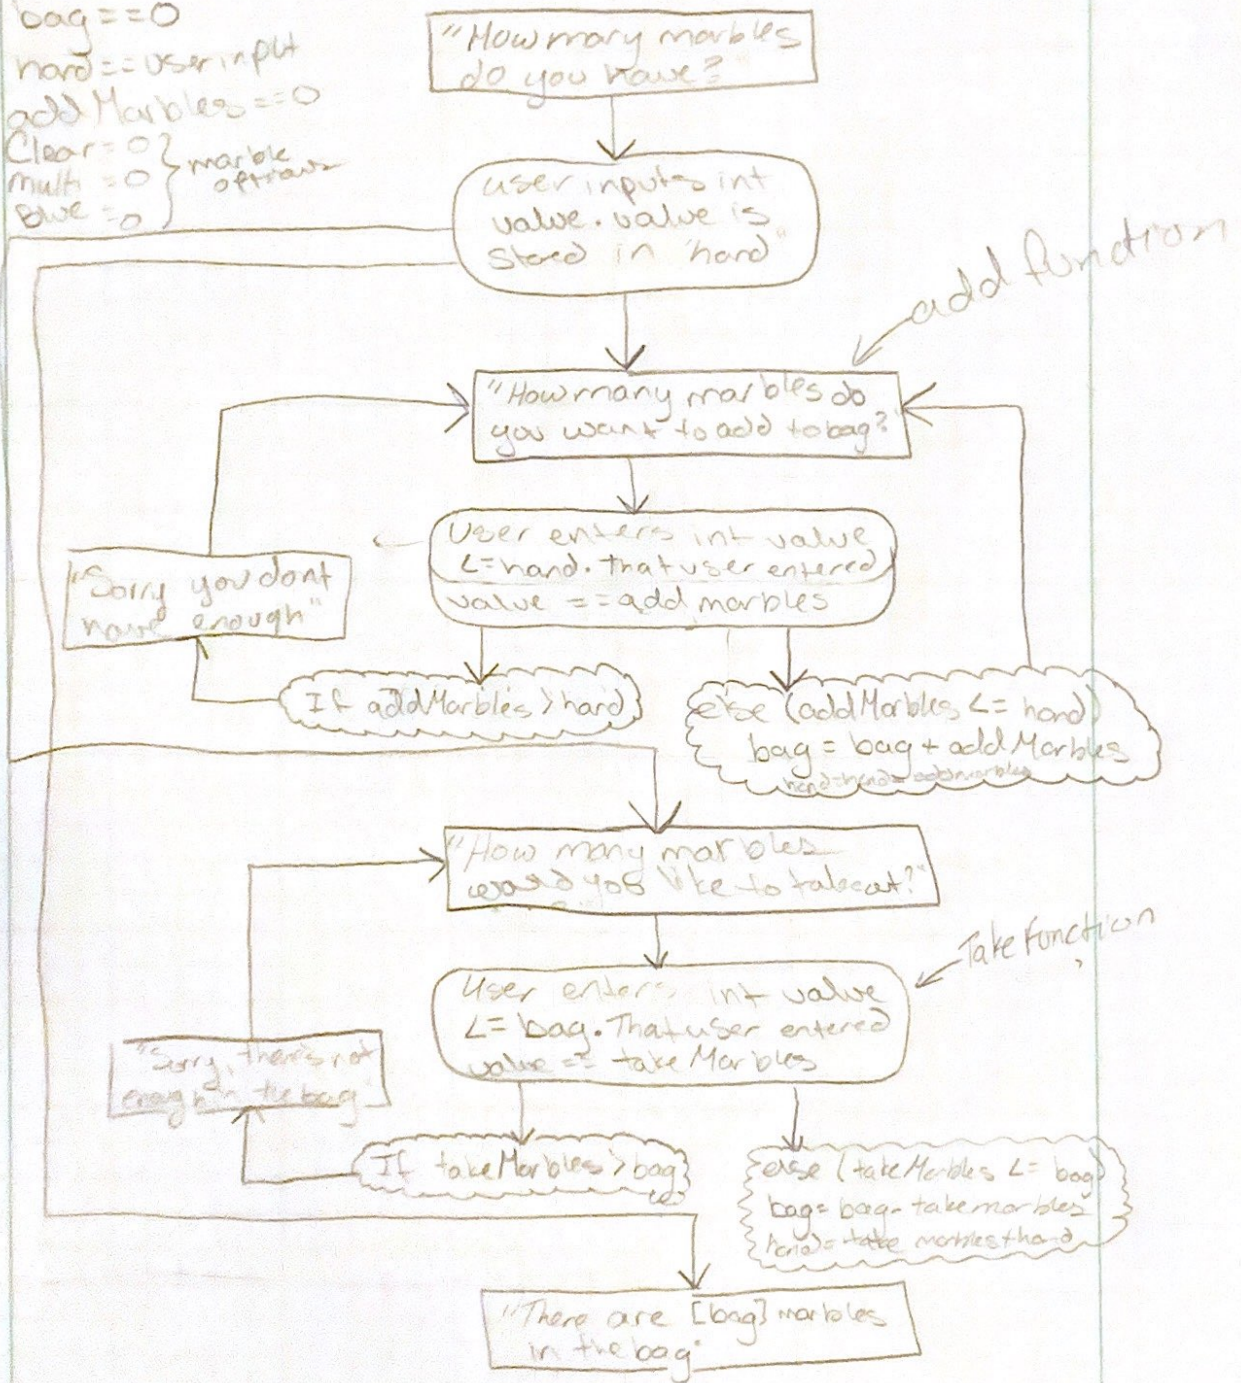 bag==0
hand==userinput
addMarbles==0
Clear=0
multi=0
Blue=0
marble
options
"How many marbles
do you have?"
user inputs int
value. value is
stored in "hand"
add function
"How many marbles do
you want to add to bag?"
User enters int value
<=hand. That user entered
value ==add marbles
"Sorry you dont
have enough"
If addMarbles >hand
else (addMarbles <= hand)
bag = bag + addMarbles
hand=hand-addmarbles
"How many marbles
would you like to takeout?"
Take function
User enters int value
<= bag. That user entered
value == takeMarbles
"Sorry, there's not
enough in the bag"
If takeMarbles >bag
else (takeMarbles <= bag)
bag= bag- takemarbles
hand= take marbles+hand
"There are [bag] marbles
in the bag"